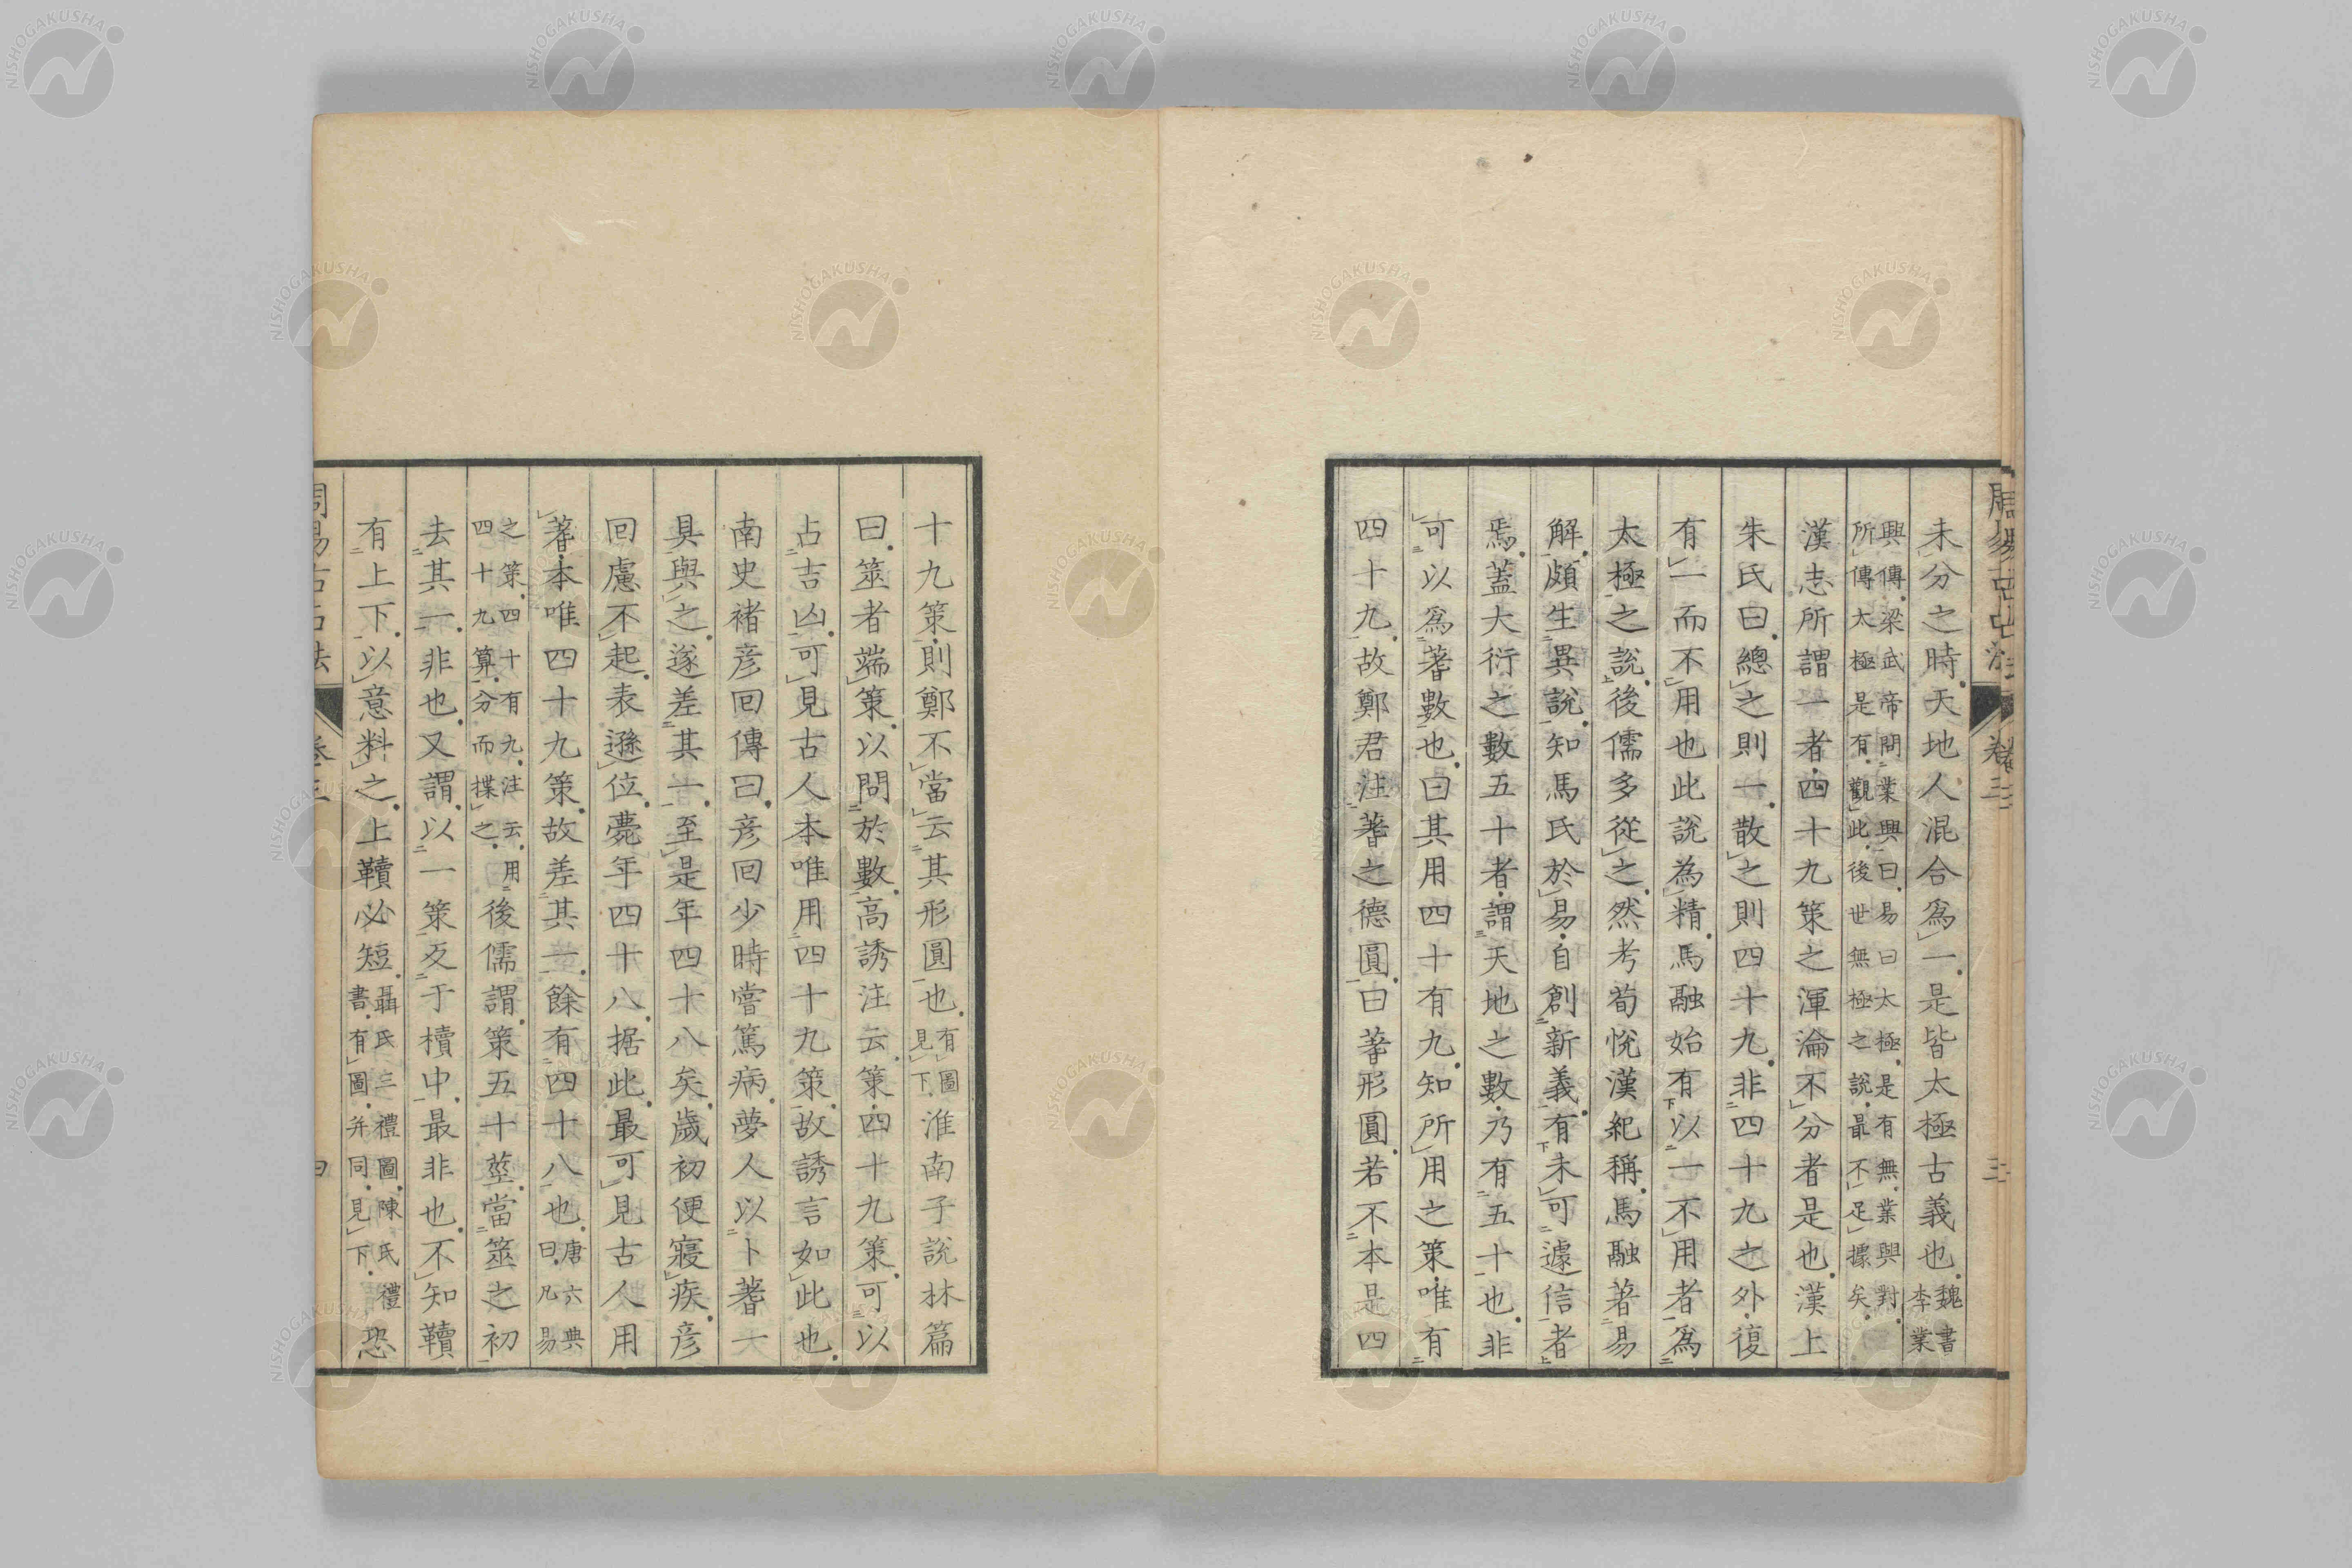 周易古占法 卷三 三
未分之時天地人混合爲一是皆太極古義也魏書李業
興傳梁武帝問業興曰易曰太極是有無業興對
所傳太極是有觀此後世無極之說最不足據矣
漢志所謂一者四十九策之渾淪不分者是也漢上
朱氏曰總之則一散之則四十九非四十九之外復
有一而不用也此說為精馬融始有以一不用者爲
太極之說後儒多從之然考荀悅漢紀稱馬融著易
解頗生異說知馬氏於易自創新義有未可遽信者
焉蓋大衍之數五十者謂天地之數乃有五十也非
可以爲蓍數也曰其用四十有九知所用之策唯有
四十九故鄭君注蓍之德圓曰蓍形圓若不本是四
十九策則鄭不當云其形圓也有圖見下淮南子說林篇
曰筮者端策以問於數高誘注云策四十九策可以
占吉凶可見古人本唯用四十九策故誘言如此也
南史褚彦回傳曰彦回少時嘗篤病夢人以卜蓍一
具與之遂差其一至是年四十八矣歲初便寢疾彦
回慮不起表遜位薨年四十八据此最可見古人用
蓍本唯四十九策故差其一餘有四十八也唐六典曰凡易
之策四十有九注云用四十九算分而揲之後儒謂策五十莖當筮之初
去其一非也又謂以一策反于櫝中最非也不知韇
有上下以意料之上韇必短聶氏三禮圖陳氏禮書有圖并同見下恐